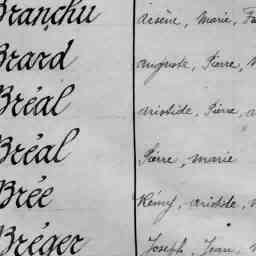 Branchu arsène, Marie, Fa
Brard auguste, Pierre, M
Bréal aristide, Pierre, a
Bréal Pierre, Marie
Brée Rémy, aristide, M
Bréger Joseph, Jean, M